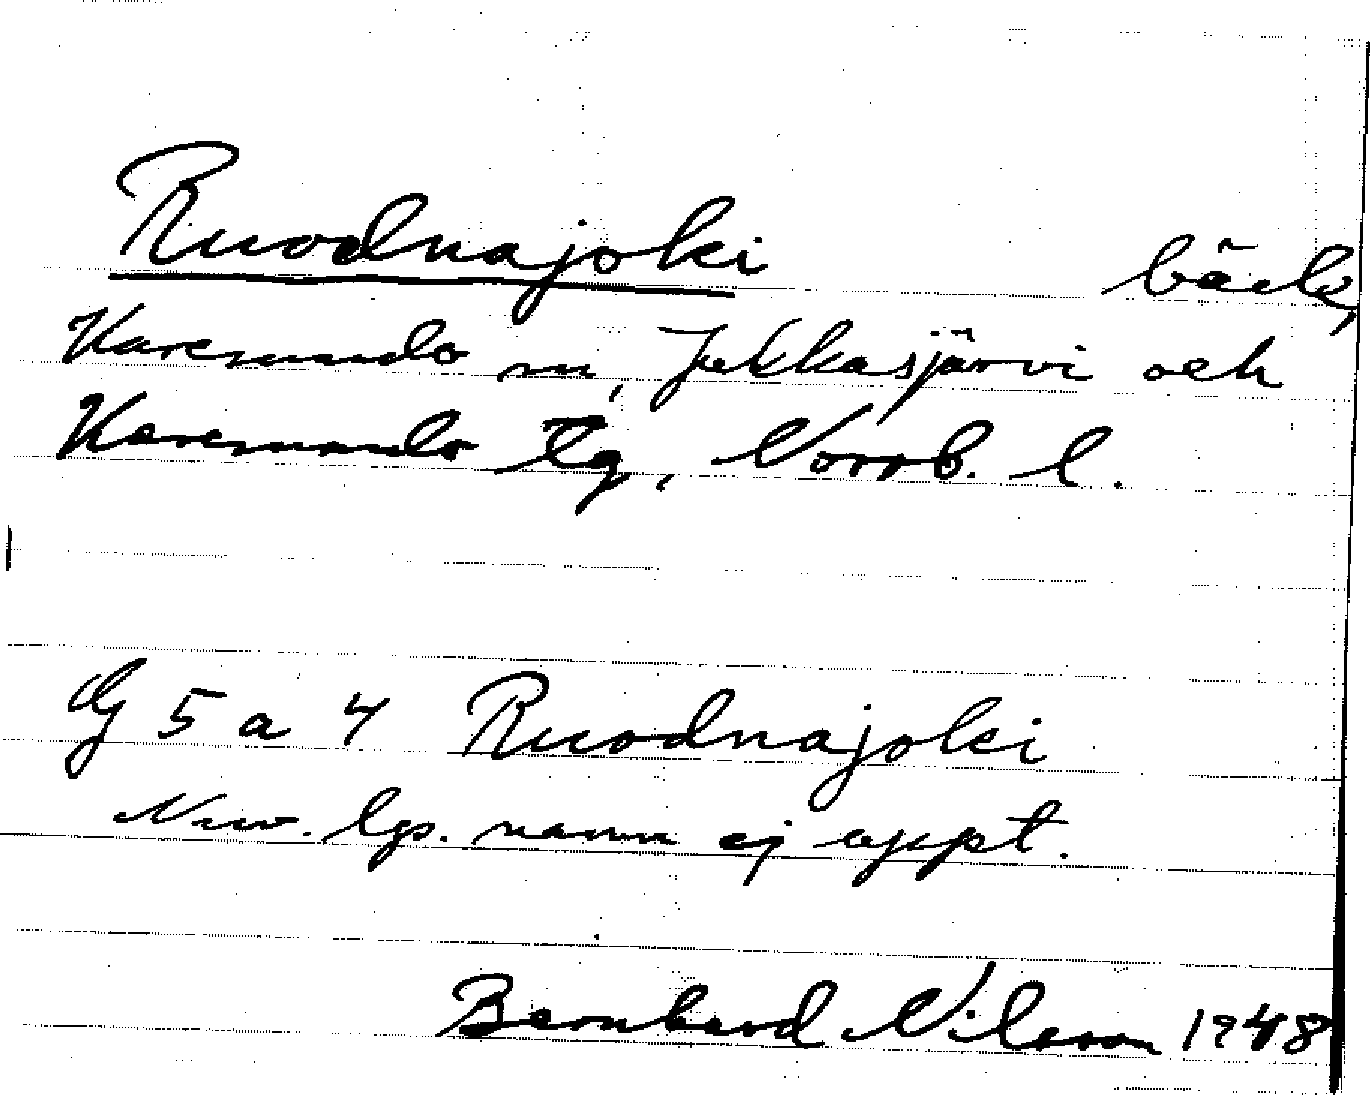 Ruodnajoki bäck,
Karesuando sn, Jukkasjärvi och
Karesuando tg, Norrb. l.
G 5 a 4 Ruodnajoki
Nuv. lps. namn ej uppt.
Bernhard Nilsson 1948